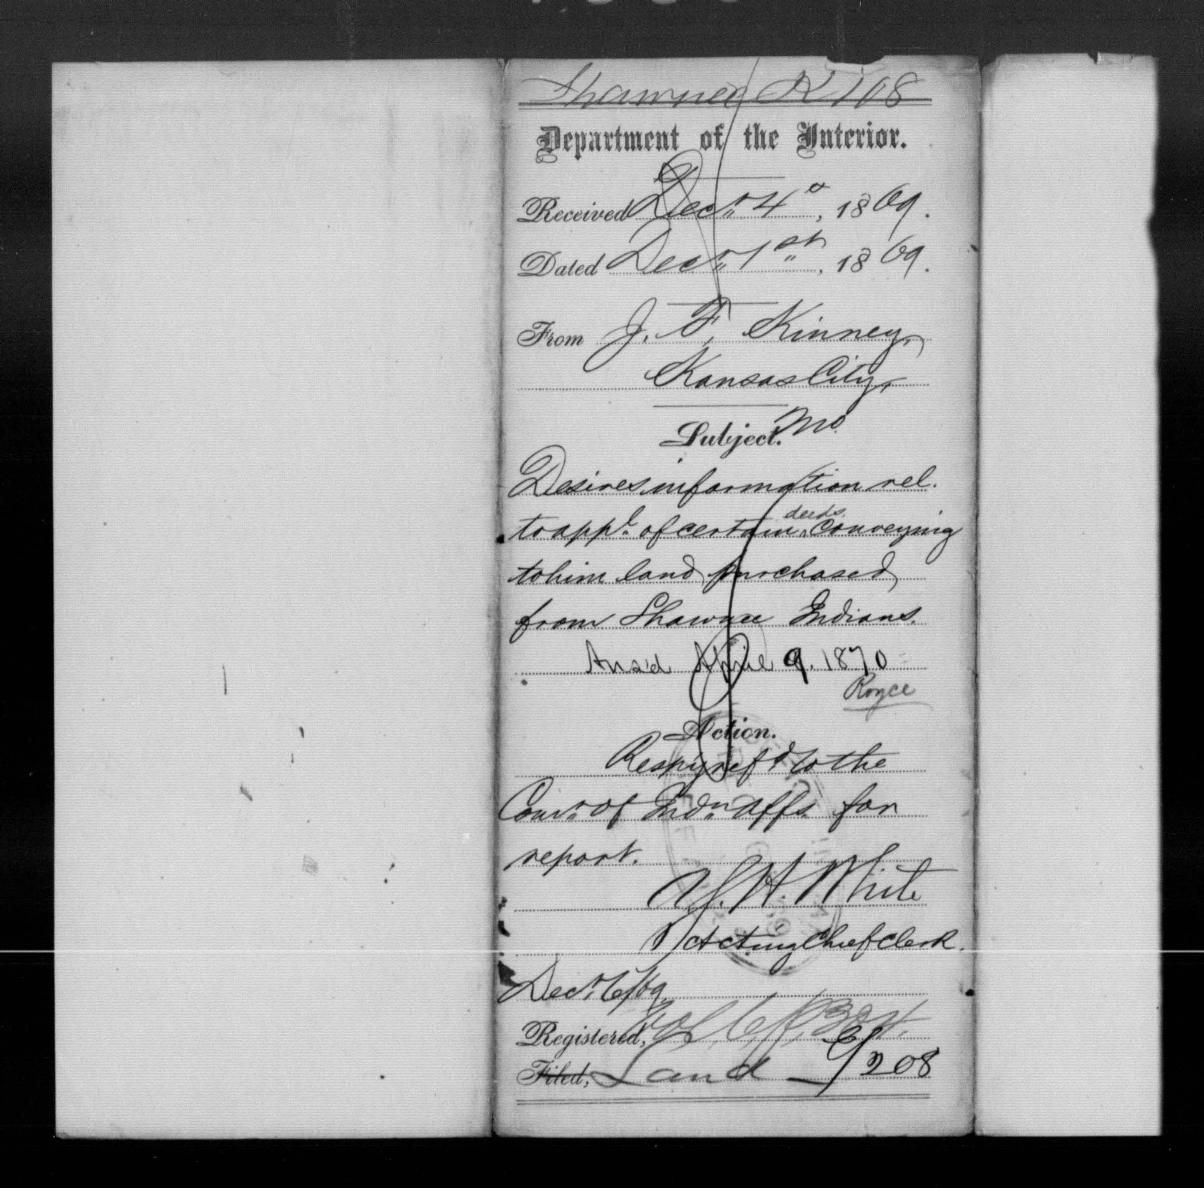 Shawnee K 108
Department of the Interior.
Received Decr. 4th, 1869.
Dated Decr. 1st, 1869.
From J. F. Kinney,
Kansas City,
Mo.
Subject.
Desires information rel.
to appl. of certain deeds conveying
to him land purchased
from Shawnee Indians.
Ansd April 9. 1870
Royce
Action.
Respy. refd to the
Comr. of Indn. Affs. for
report.
H. White
Acting Chief Clerk.
Decr. 6/69
Registered,
Filed, Land 208